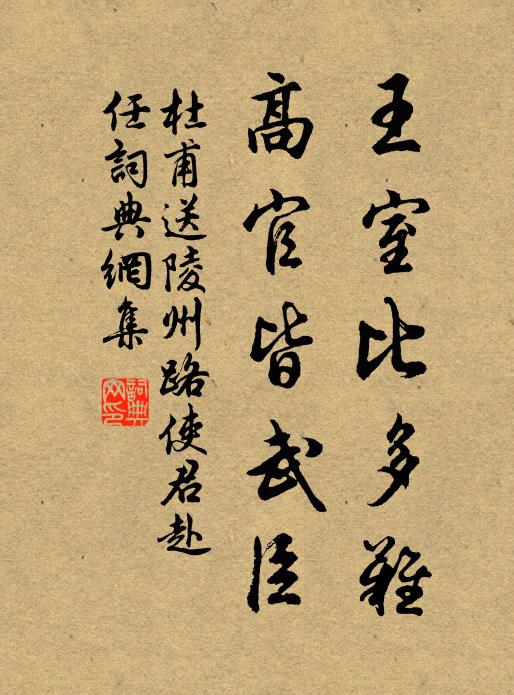 王室比多難
高官皆武臣
杜甫送陵州路使君赴
任詞典網集
詞典
网印